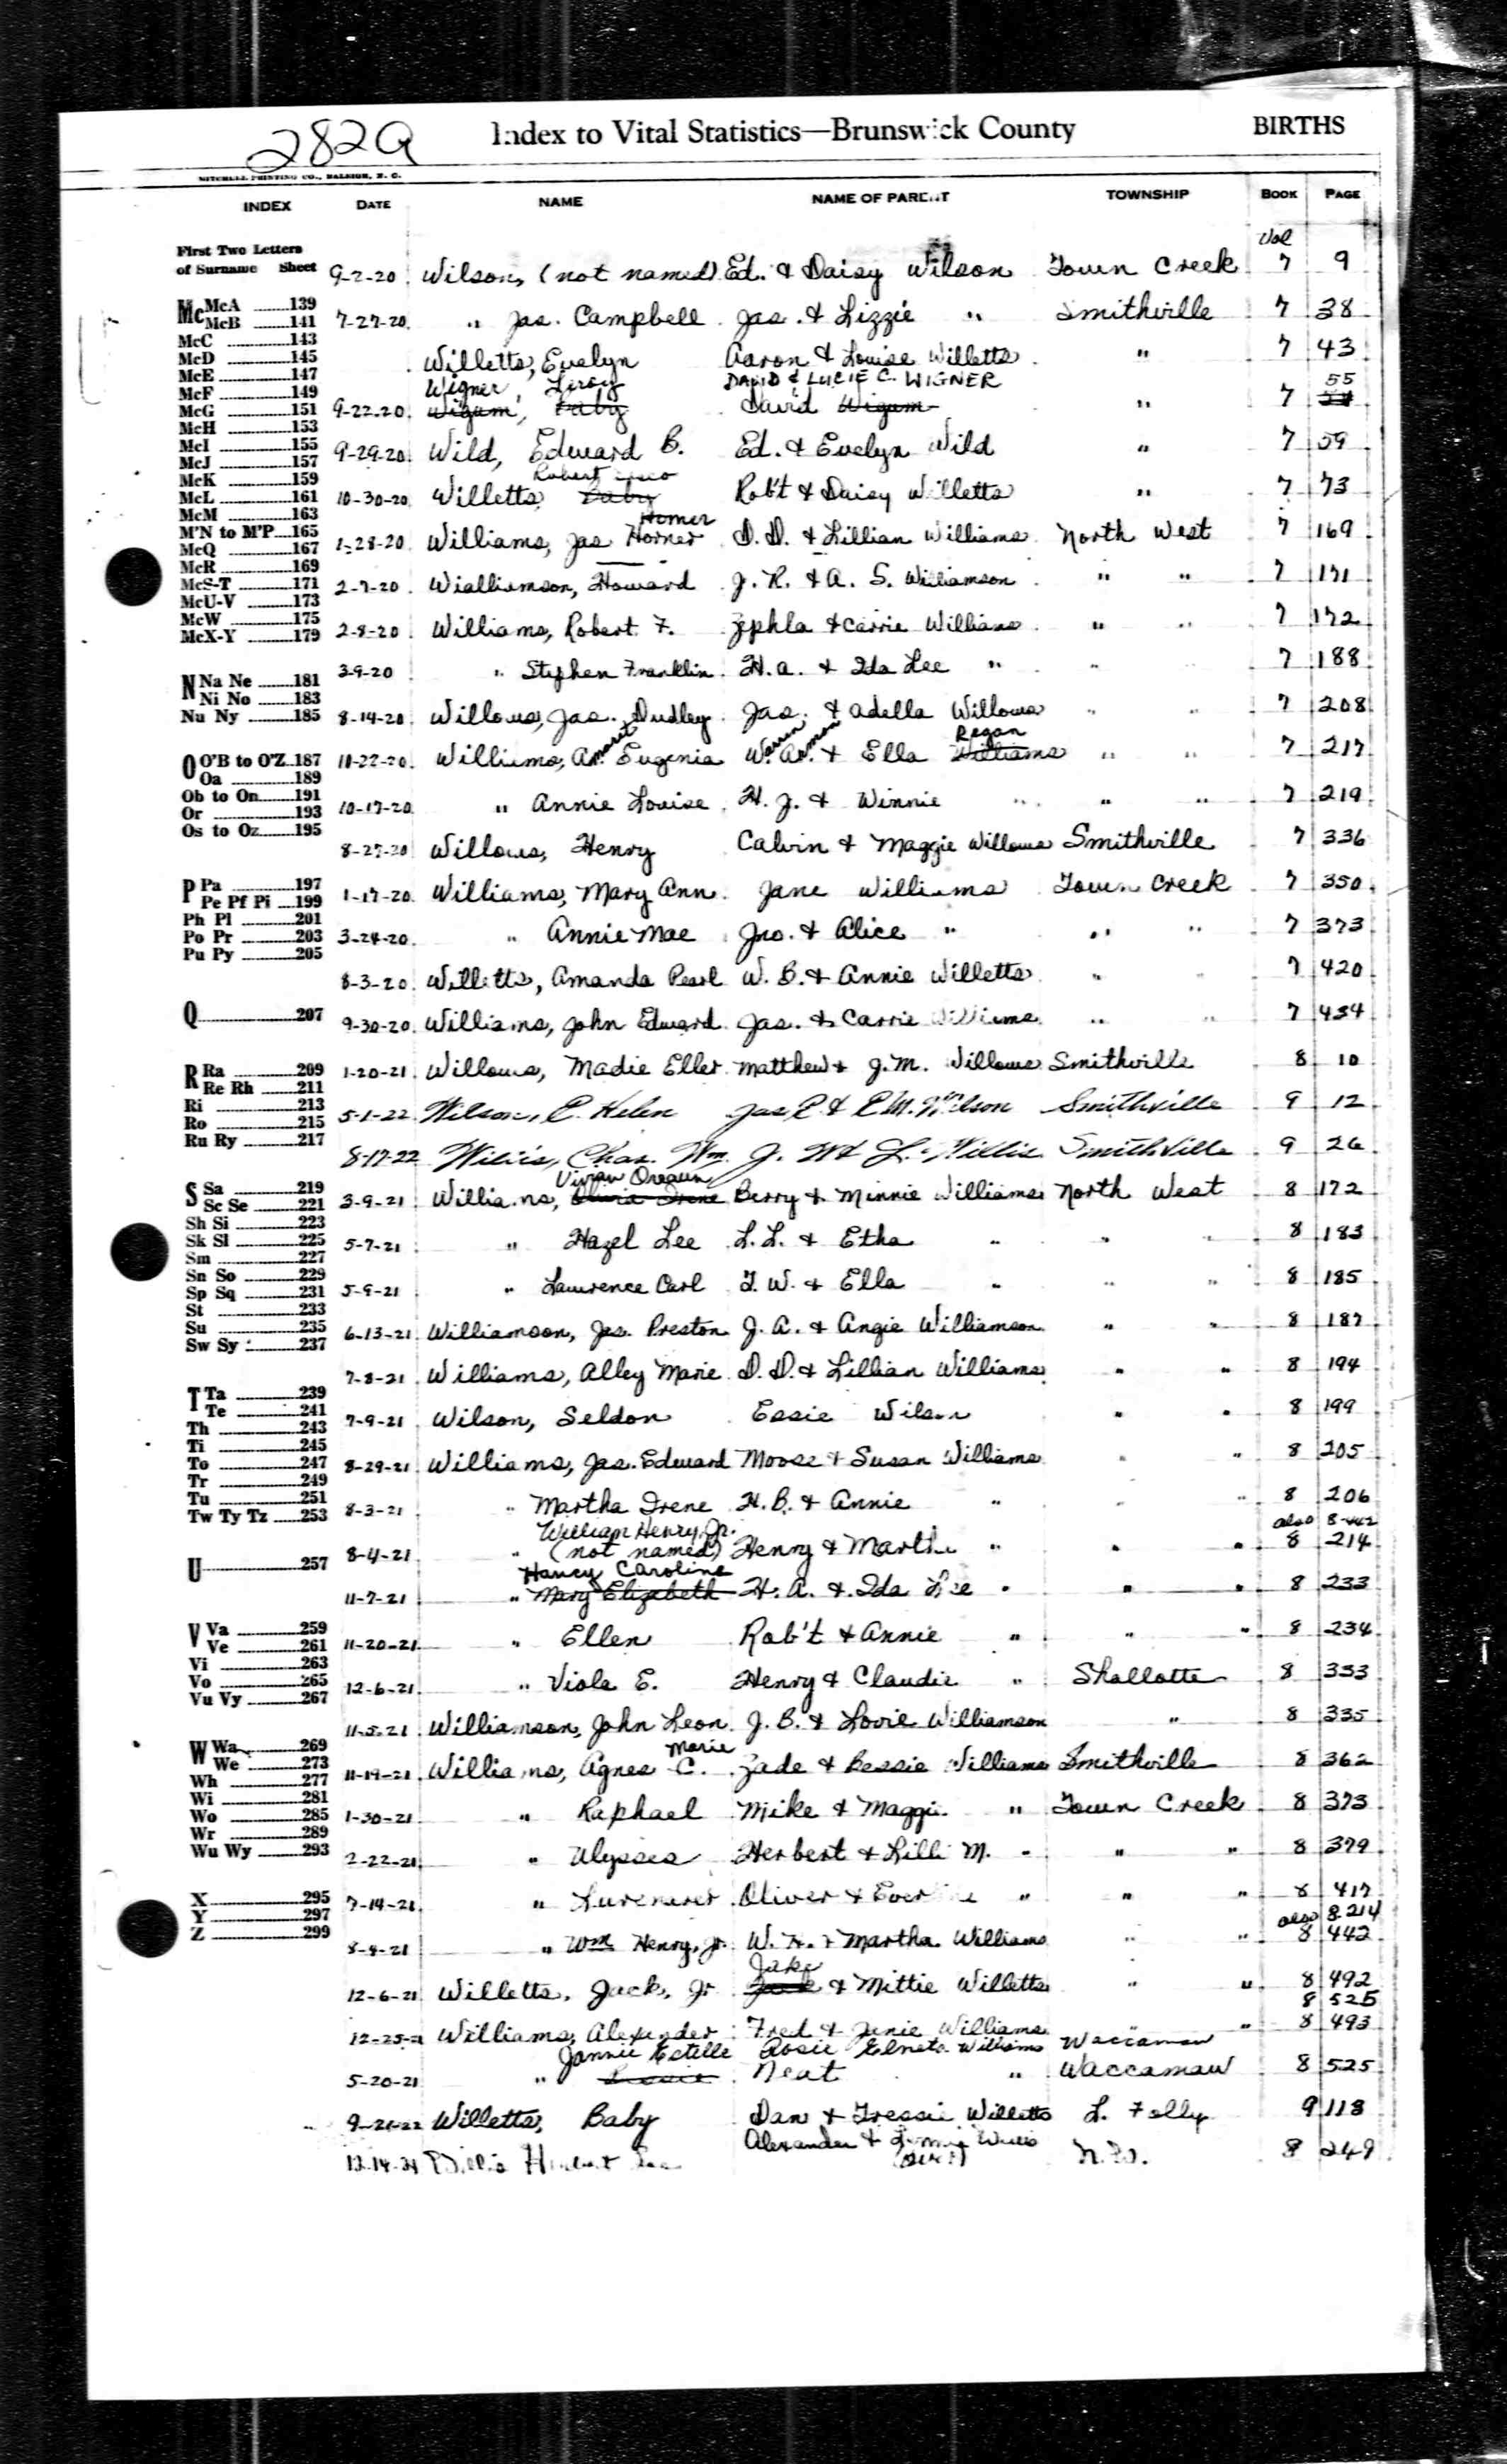 282a
Index to Vital Statistics—Brunswick County BIRTHS
MITCHELL PRINTING CO., RALEIGH, N. C.
INDEX DATE NAME NAME OF PARENT TOWNSHIP BOOK PAGE
First Two Letters
of Surname Sheet
Vol
9-2-20 Wilson, (not named) Ed. & Daisy Wilson Town Creek 7 9
Mc McA 139
McB 141
7-27-20 " Jas. Campbell Jas. & Lizzie " Smithville 7 38
McC 143
McD 145
Willetts, Evelyn Aaron & Louise Willetts " 7 43
McE 147
McF 149
Wigner, Leroy DAVID & LUCIE C. WIGNER 55
McG 151
9-22-20 Wigum, Baby David Wigum " 7
McH 153
McI 155
9-29-20 Wild, Edward B. Ed. & Evelyn Wild " 7 59
McJ 157
McK 159
Robert
McL 161
10-30-20 Willetts Baby Rob't & Daisy Willetts " 7 73
McM 163
M'N to M'P 165
Homer
1-28-20 Williams, Jas Horner D. D. & Lillian Williams North West 7 169
McQ 167
McR 169
McS-T 171
2-7-20 Wialliamson, Howard J. R. & A. S. Williamson " " 7 171
McU-V 173
McW 175
2-8-20 Williams, Robert F. Zephla & Carrie Williams " " 7 172
McX-Y 179
3-9-20 " Stephen Franklin H. A. & Ida Lee " " 7 188
N Na Ne 181
Ni No 183
Nu Ny 185
8-14-20 Willows, Jas. Dudley Jas. & Adella Willows " " 7 208
Warren Arman Regan
O O'B to O'Z 187
11-22-20 Williams, An. Eugenia W. A. & Ella Williams " " 7 217
Oa 189
Ob to On 191
Or 193
10-17-20 " Annie Louise H. J. & Winnie " " " 7 219
Os to Oz 195
8-27-20 Willows, Henry Calvin & Maggie Willows Smithville 7 336
P Pa 197
Pe Pf Pi 199
1-17-20 Williams, Mary Ann Jane Williams Town Creek 7 350
Ph Pl 201
Po Pr 203
3-24-20 " Annie Mae Jno. & Alice " " " 7 373
Pu Py 205
8-3-20 Willetts, Amanda Pearl W. B. & Annie Willetts " " 7 420
Q 207
9-30-20 Williams, John Edward Jas. & Carrie Williams " " 7 434
R Ra 209
Re Rh 211
1-20-21 Willows, Madie Eller Matthew & J. M. Willows Smithville 8 10
Ri 213
Ro 215
5-1-22 Wilson, E. Helen Jas E. & E. M. Wilson Smithville 9 12
Ru Ry 217
8-17-22 Willis, Chas. Wm. J. W & L. Willis Smithville 9 26
S Sa 219
Sc Se 221
Vivian
3-9-21 Williams, Olivia Irene Berry & Minnie Williams North West 8 172
Sh Si 223
Sk Sl 225
5-7-21 " Hazel Lee L. L. & Etha " " " 8 183
Sm 227
Sn So 229
Sp Sq 231
5-9-21 " Lawrence Carl T. W. & Ella " " " 8 185
St 233
Su 235
6-13-21 Williamson, Jas. Preston J. A. & Angie Williamson " " 8 187
Sw Sy 237
7-8-21 Williams, Alley Marie D. D. & Lillian Williams " " 8 194
T Ta 239
Te 241
7-9-21 Wilson, Seldon Essie Wilson " " 8 199
Th 243
Ti 245
To 247
8-29-21 Williams, Jas. Edward Moose & Susan Williams " " 8 205
Tr 249
Tu 251
8-3-21 " Martha Irene H. B. & Annie " " " 8 206
Tw Ty Tz 253
William Henry, Jr. also 8-442
8-4-21 " (not named) Henry & Martha " " " 8 214
U 257
Nancy Caroline
11-7-21 " Mary Elizabeth H. A. & Ida Lee " " " 8 233
V Va 259
Ve 261
11-20-21 " Ellen Rob't & Annie " " " 8 234
Vi 263
Vo 265
12-6-21 " Viola E. Henry & Claudie " Shallotte 8 333
Vu Vy 267
11-5-21 Williamson, John Leon J. B. & Lovie Williamson " 8 335
W Wa 269
We 273
Marie
11-19-21 Williams, Agnes C. Zade & Bessie Williams Smithville 8 362
Wh 277
Wi 281
Wo 285
1-30-21 " Raphael Mike & Maggie " Town Creek 8 373
Wr 289
Wu Wy 293
2-22-21 " Ulysses Herbert & Lilli M. " " " 8 379
X 295
7-14-21 " Oliver & " " " 8 417
Y 297
Z 299
also 8-214
8-4-21 " Wm Henry, Jr. W. H. & Martha Williams " " 8 442
Jake
12-6-21 Willetts, Jack, Jr. Jack & Mittie Willetts " " 8 492
8 525
12-25-21 Williams, Alexander Fred & Janie Williams " " 8 493
Jannie Estelle Rosie Elneta Williams Waccamaw
5-20-21 " Neat " Waccamaw 8 525
9-21-22 Willetts, Baby Dan & Tressie Willetts L. Folly 9 118
Alexander & Willis
12-14-21 Willis N.W. 8 249